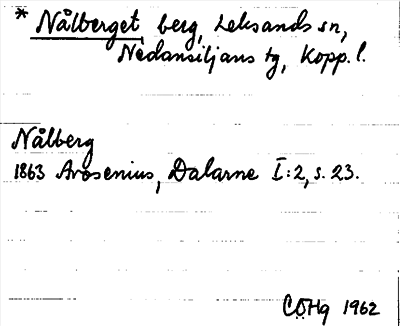 * Nålberget berg, Leksands sn,
Nedansiljans tg, Kopp. l.
Nålberg
1863 Arosenius, Dalarne I:2, s. 23.
CÖHg 1962